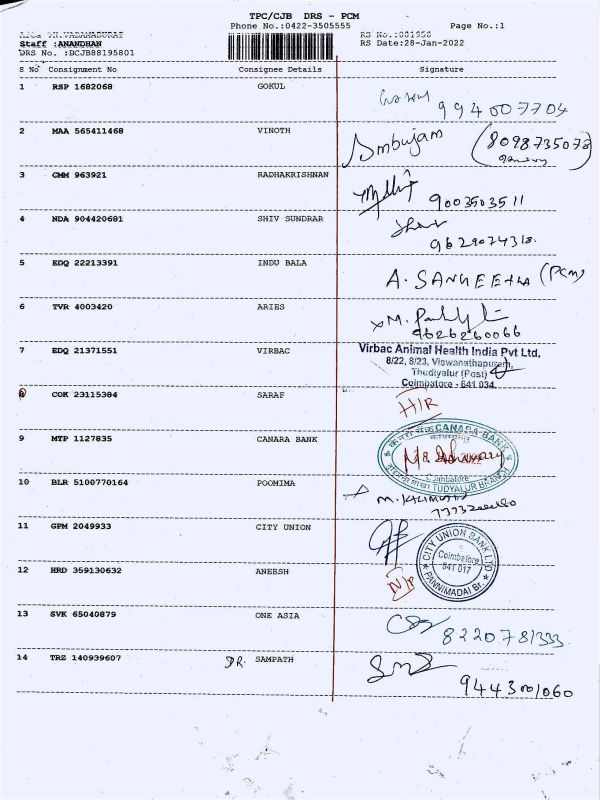 TPC/CJB DRS - PCM
Phone No.:0422-3505555 Page No.:1
Area
RS No.:881958
Staff :ANANDHAN
RS Date:28-Jan-2022
DRS No. :DCJB88195801
S No Consignment No Consignee Details Signature
1 RSP 1682068 GOKUL
994007704
2 MAA 565411468 VINOTH Ambujam (8098735073
3 GMM 963921 RADHAKRISHNAN
9003503511
4 NDA 904420681 SHIV SUNDRAR
9629074318.
5 EDQ 22213391 INDU BALA A. SANGEETHA (PCM)
6 TVR 4003420 ARIES
9626260066
7 EDQ 21371551 VIRBAC Virbac Animal Health India Pvt Ltd,
8/22, 8/23, Viswanathapuram,
Thudiyalur (Post)
Coimbatore - 641 034.
8 COK 23115384 SARAF
9 MTP 1127835 CANARA BANK
केनरा बैंक CANARA BANK
Coimbatore
TUDYALUR BRANCH
10 BLR 5100770164 POOMIMA
11 GPM 2049933 CITY UNION
CITY UNION BANK LTD
Coimbatore
641 017
PANNIMADAI Br.
12 HRD 359130632 ANEESH
13 SVK 65040879 ONE ASIA
8220781333
14 TRZ 140939607 DR. SAMPATH
9443001060